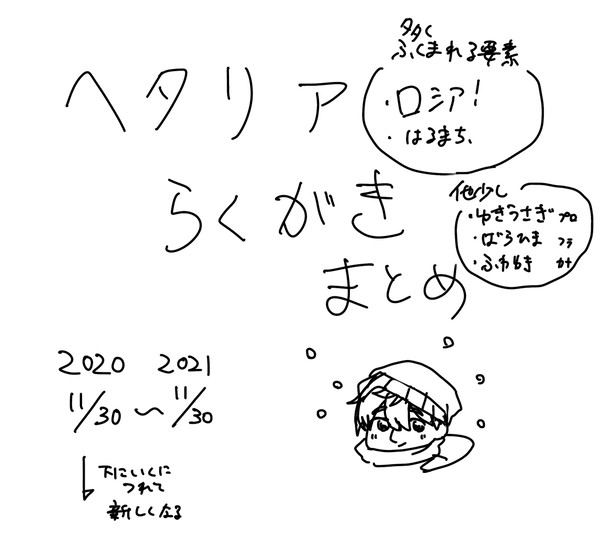 ヘタリア
らくがき
まとめ
多く
ふくまれる要素
・ロシア!
・はるまち、
他少し
・ゆきうさぎ プロ
・ばろひま フラ
・ふわゆき カナ
2020 2021
11/30 〜 11/30
下にいくに
つれて
新しくなる